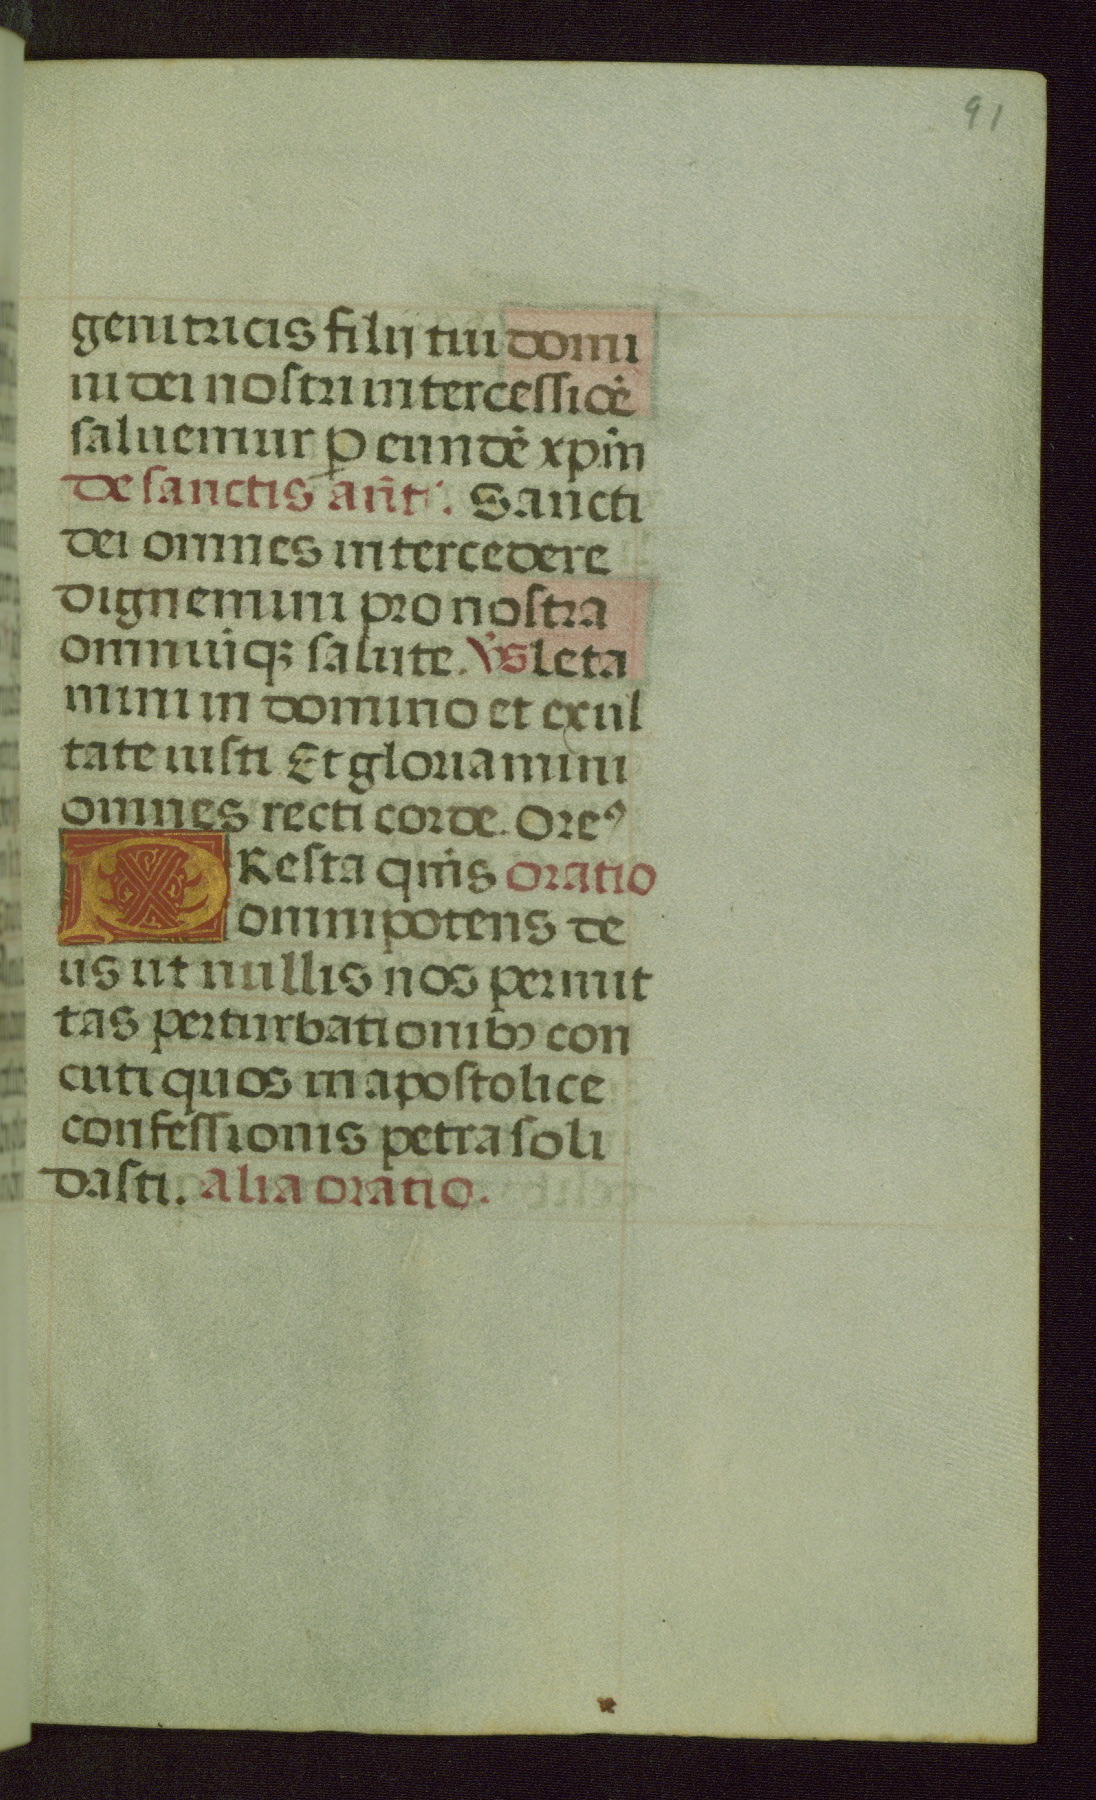 91
genitricis filij tui domi
ni dei nostri intercessiōē
saluemur ꝑ eundē xp̄m
de sanctis an̄t. Sancti
dei omnes intercedere
dignemini pro nostra
omniūqꝫ salute. v̄s leta
mini in domino et exul
tate iusti Et gloriamini
omnes recti corde. Oreꝰ
PResta qūis oratio
omnipotens de
us ut nullis nos permit
tas perturbationibꝫ con
cuti quos in apostolice
confessionis petra soli
dasti. alia oratio.